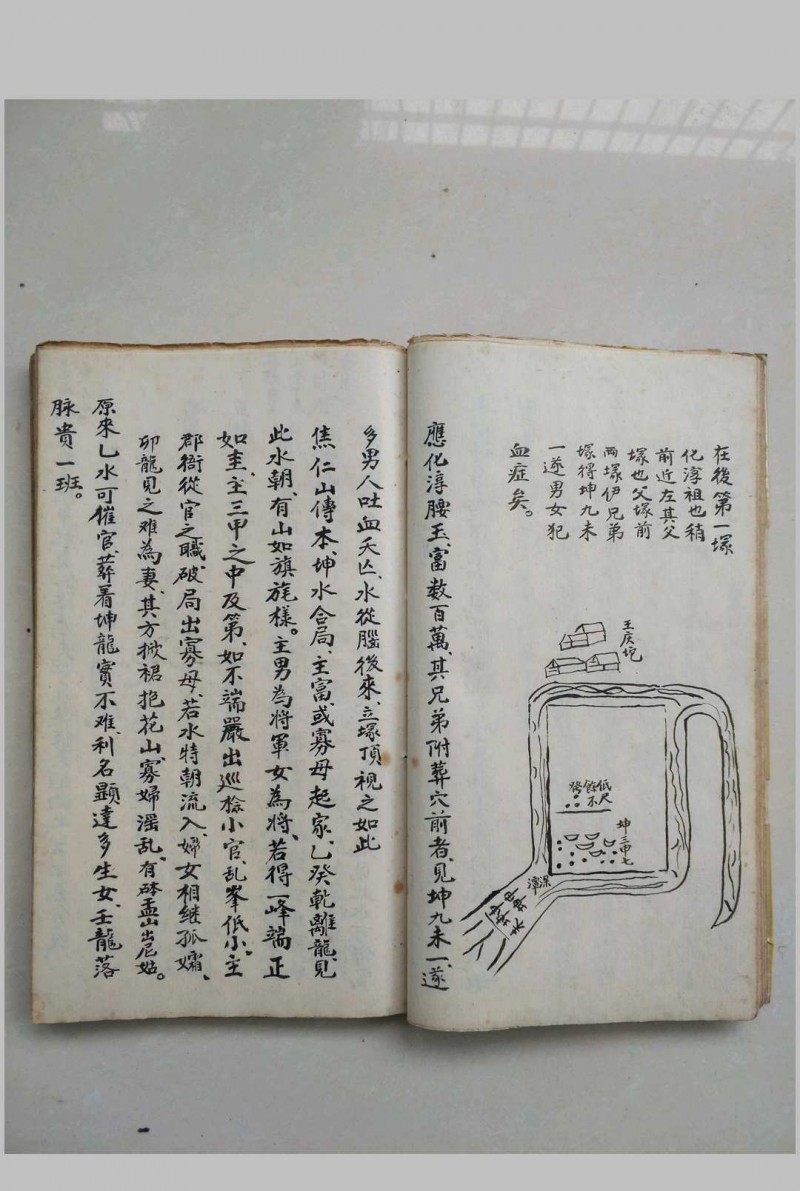 在後第一塚
化淳祖也稍
前近左其父
塚也父塚前
両塚伊兄弟
塚得坤九未
一遂男女犯
血症矣。
王庆坨
餘低
不尺
坤三申七
深
潭
應化淳腰玉、富数百萬、其兄弟附葬穴前者、見坤九未一、遂
多男人吐血夭亡、水從腦後來、立塚頂視之如此
焦仁山傳本、坤水合局、主富、或寡母起家、乙癸乾離龍、見
此水朝、有山如旗旄様。主男為將軍女為將、若得一峰端正
如圭、主三甲之中及第、如不端嚴出巡檢小官、乱峯低小、主
郡衙從官之職、破局出寡母、若水特朝流入、婦女相继孤孀、
卯龍見之难為妻、其方掀裙抱花山、寡婦滛乱、有砵盂山出尼姑。
原來乙水可催官、葬着坤龍實不难、利名顕達多生女、壬龍落
脉貴一班。